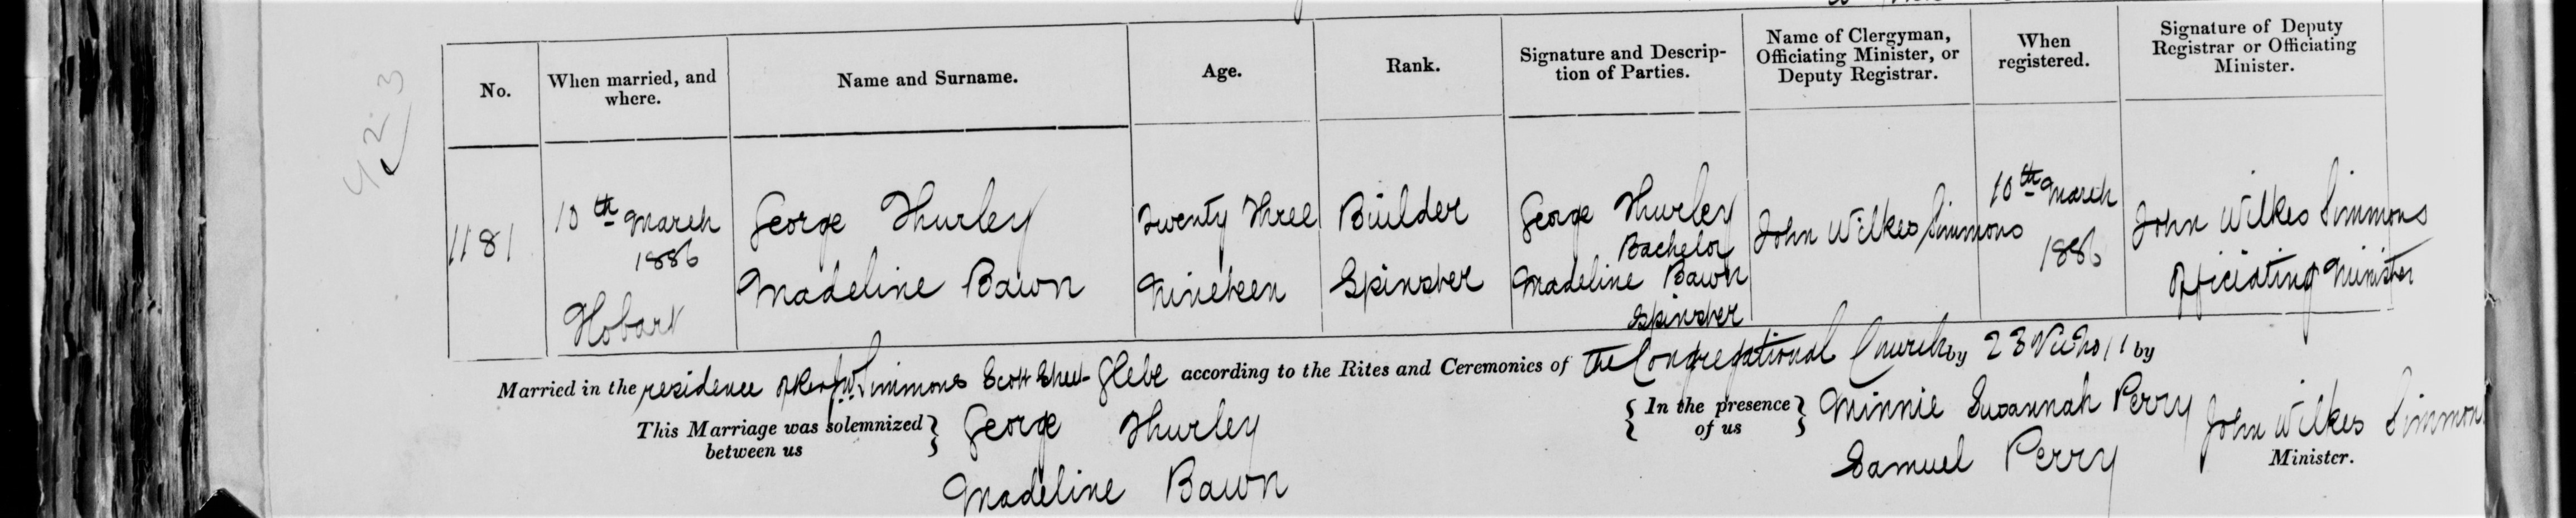 423
No. When married, and where. Name and Surname. Age. Rank. Signature and Description of Parties. Name of Clergyman, Officiating Minister, or Deputy Registrar. When registered. Signature of Deputy Registrar or Officiating Minister.
1181 10th March 1886 Hobart
George Thurley Twenty Three Builder George Thurley Bachelor
Madeline Bawn Nineteen Spinster Madeline Bawn Spinster
John Wilkes Simmons 10th March 1886 John Wilkes Simmons Officiating Minister
Married in the residence of Rev J.W. Simmons Scott Street Glebe according to the Rites and Ceremonies of the Congregational Church by 23 Vic No 11 by
This Marriage was solemnized between us } George Thurley { In the presence of us } Minnie Susannah Perry John Wilkes Simmons
Madeline Bawn Samuel Perry Minister.